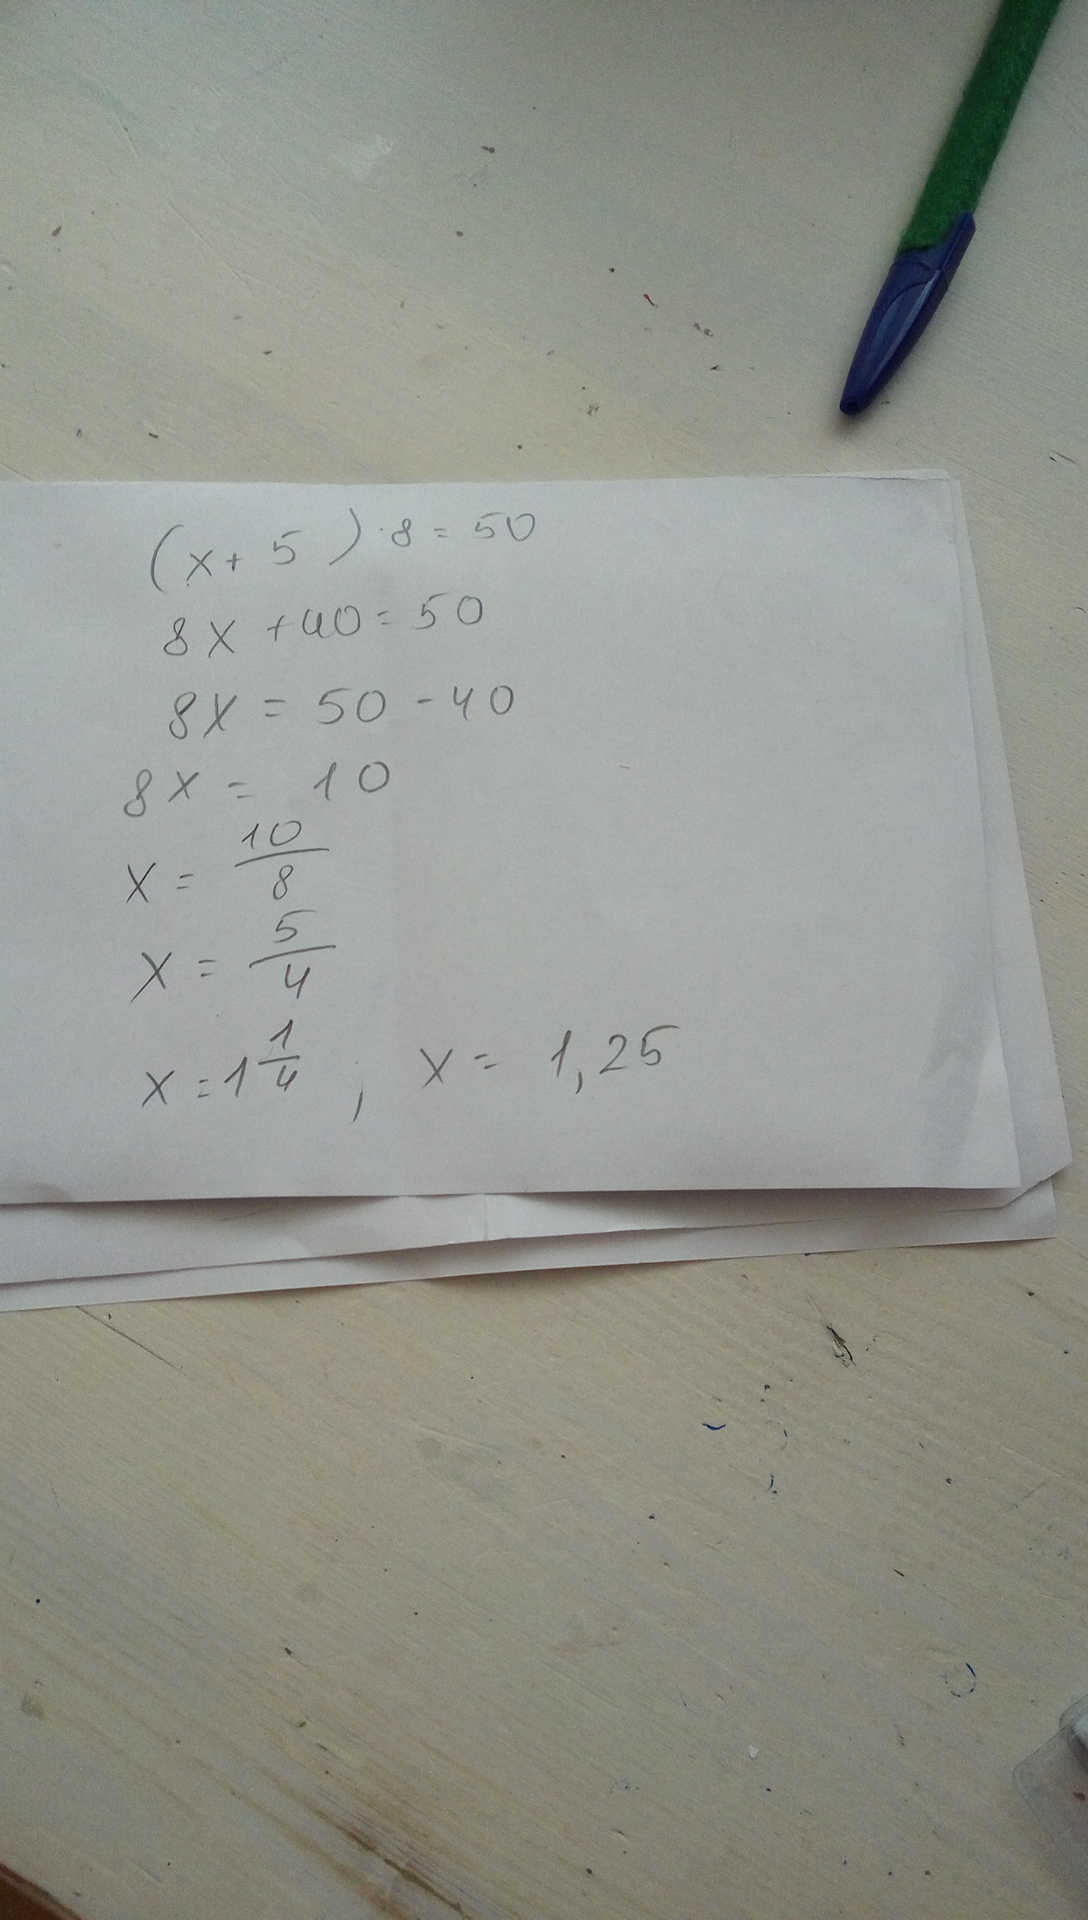 (x + 5) · 8 = 50
8x + 40 = 50
8x = 50 - 40
8x = 10
x = 10/8
x = 5/4
x = 1 1/4 ; x = 1,25